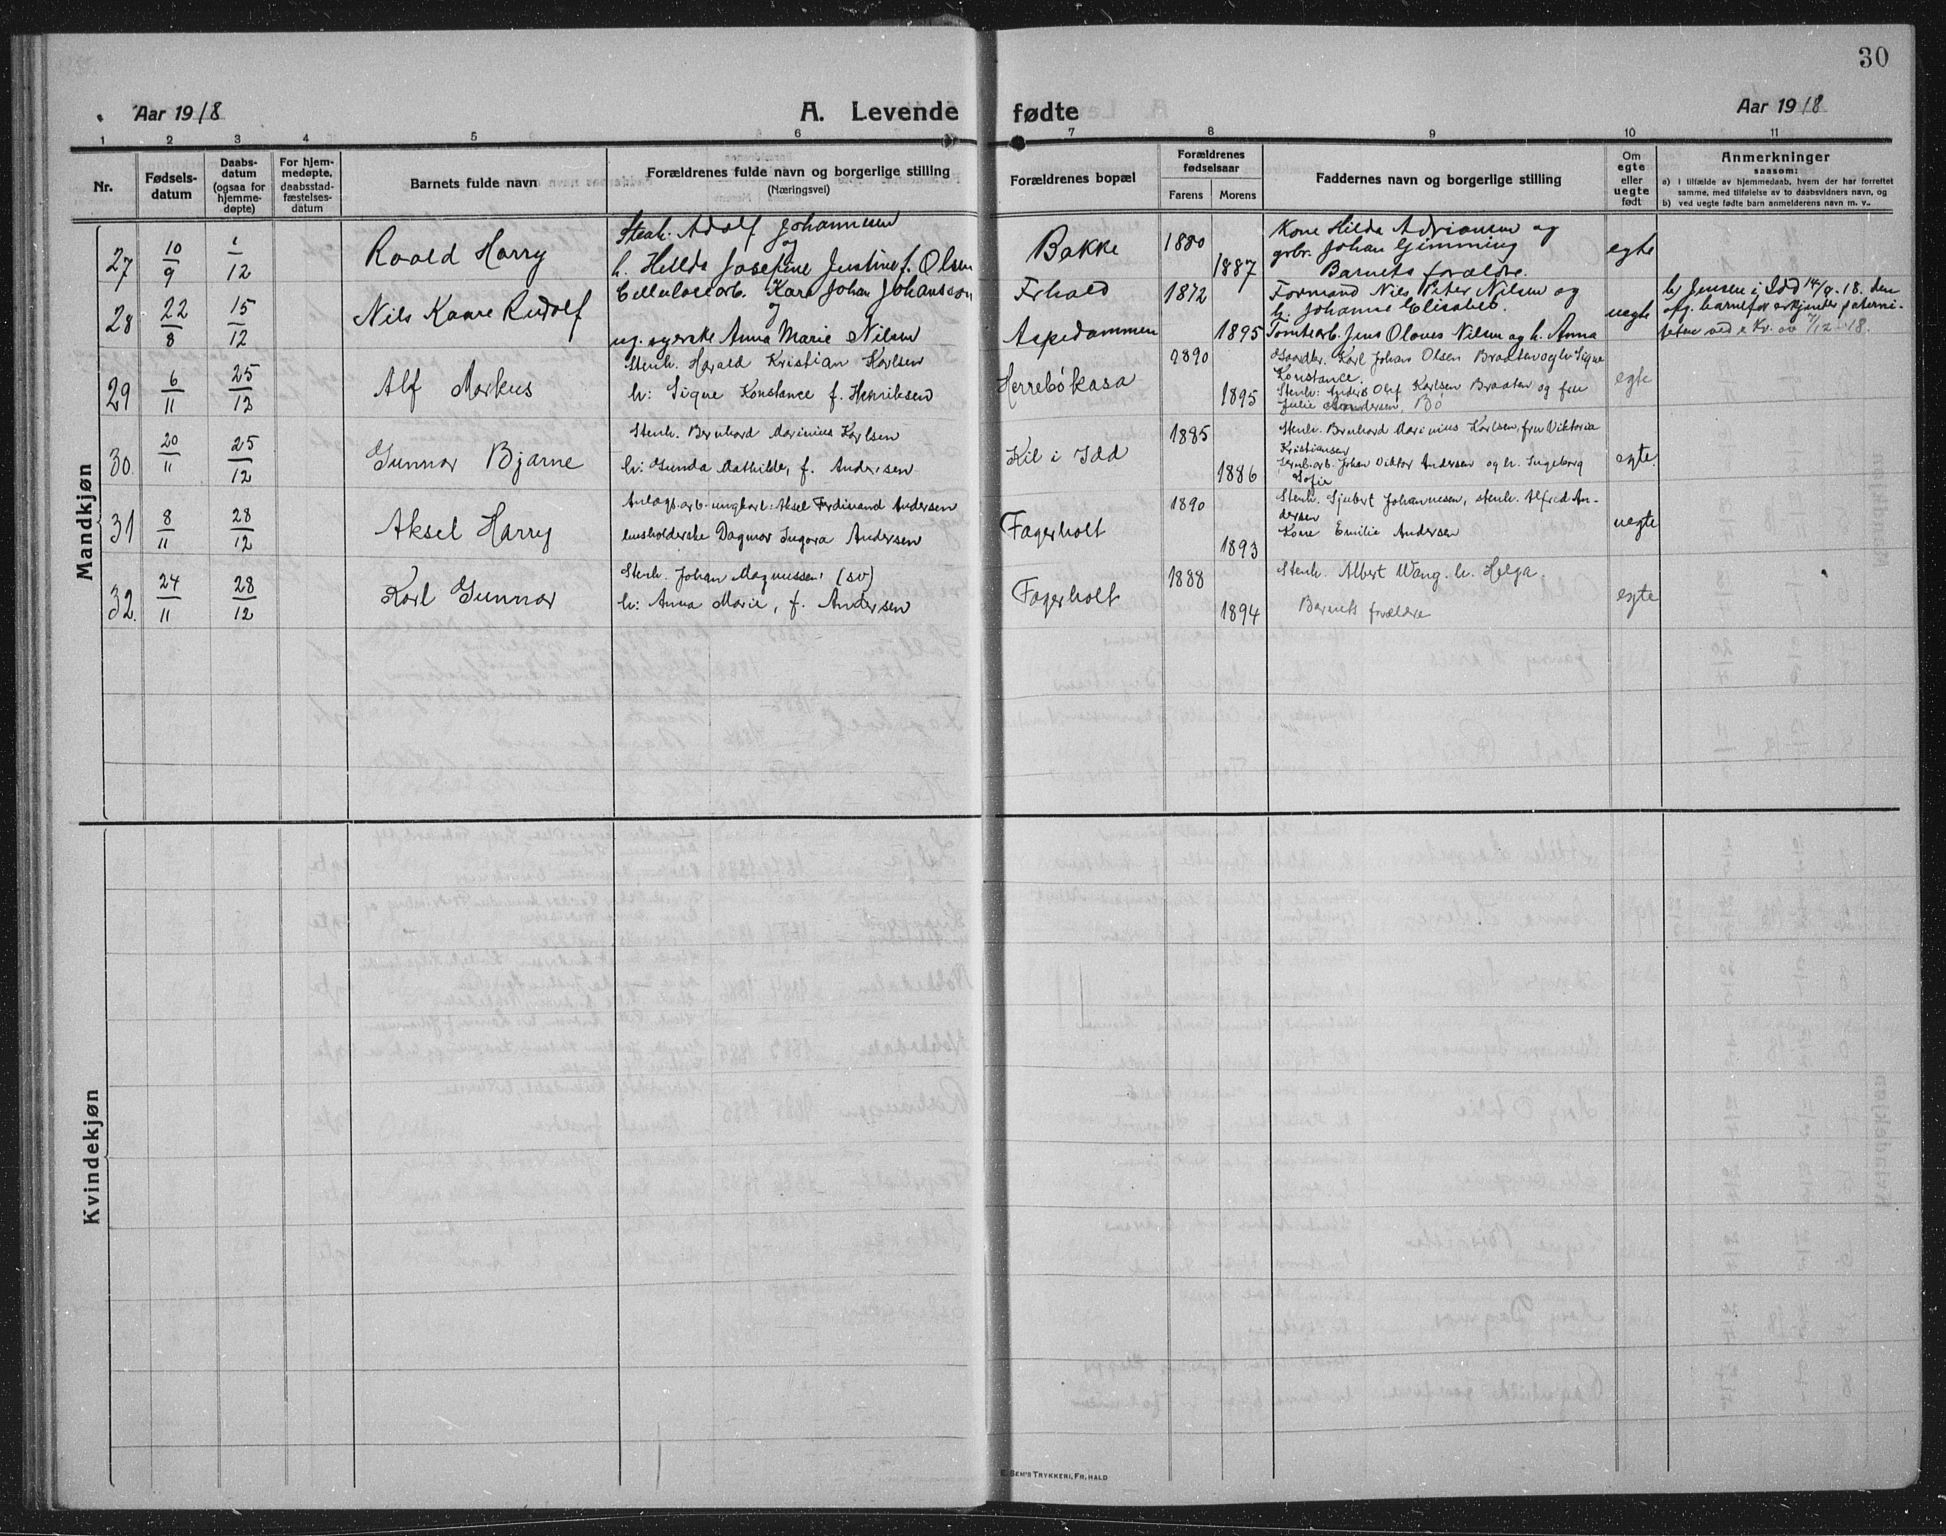 30
Aar 1918
A. Levende fødte
Aar 1918
1 2 3 4 5 6 7 8 9 10 11
Nr.
Fødselsdatum
Daabsdatum (ogsaa for hjemmedøpte)
For hjemmedøpte, daabsstadfæstelsesdatum
Barnets fulde navn
Forældrenes fulde navn og borgerlige stilling
(Næringsvei)
Forældrenes bopæl
Forældrenes fødselsaar
Farens Morens
Faddernes navn og borgerlige stilling
Om egte eller uegte født
Anmerkninger
saasom:
a) i tilfælde av hjemmedaab, hvem der har forrettet
samme, med tilføielse av to daabsvidners navn, og
b) ved uegte fødte barn anmelderens navn m. v..
Mandkjøn
27 10/9 1/12 Roald Harry
Stenh. Adolf Johannesen
og
h. Hilda Josefine Justine f. Olsen
Bakke 1880 1887
Kone Hilda Adriansen og
grbr. Johan Gimming
Barnets forældre.
egte
28 22/8 15/12 Nils Kaare Rudolf
Cellulosearb. Karl Johan Johansson
og
ug. syerske Anna Marie Nilsen
Frhald 1872
Aspedammen 1895
Formand Nils Peter Nilsen og
h. Johanne Elisabet
Tomterb. Jens Olaves Nilsen og h. Anna
uegte
bj Jensen i Idd 14/9.18. den
opg. barnefar erkjender paterni-
teten ved 12-18.
29 6/11 25/12 Alf Markus
Stenh. Harald Kristian Karlsen
h: Signe Konstance f. Henriksen
Herrebøkasa 1890 1895
Gaardbr. Karl Johan Olsen Braaten og h. Signe
Konstance.
Stenh: Anders Olef Karlsen Braaten og fru
Julie Andersen, Bø
egte
30. 20/11 25/12 Gunnar Bjarne
Stenh. Bernhard Marinius Karlsen
h: Gunda Mathilde, f. Andersen
Kil i Idd 1885 1886
Stenh. Bernhard Marinius Karlsen, fru Viktoria
Kristiansen
Jernb.arb. Johan Viktor Andersen og h. Ingeborg
Sofie
egte.
31 8/11 28/12 Aksel Harry
Anlægsarb. ungkarl: Aksel Ferdinand Andersen
husholderske Dagmar Ingora Andersen
Fagerholt 1890 1893
Stenh. Sjubert Johannesen, stenh. Alfred An-
dersen
Kone Emilie Andersen
uegte
32. 24/11 28/12 Karl Gunnar
Stenh. Johan Magnussen (sv)
h: Anna Marie, f. Andersen
Fagerholt 1888 1894
Stenh. Albert Wang. h. Helga
Barnets forældre
egte
Kvindekjøn
E. Sem's Trykkeri, Fr.hald